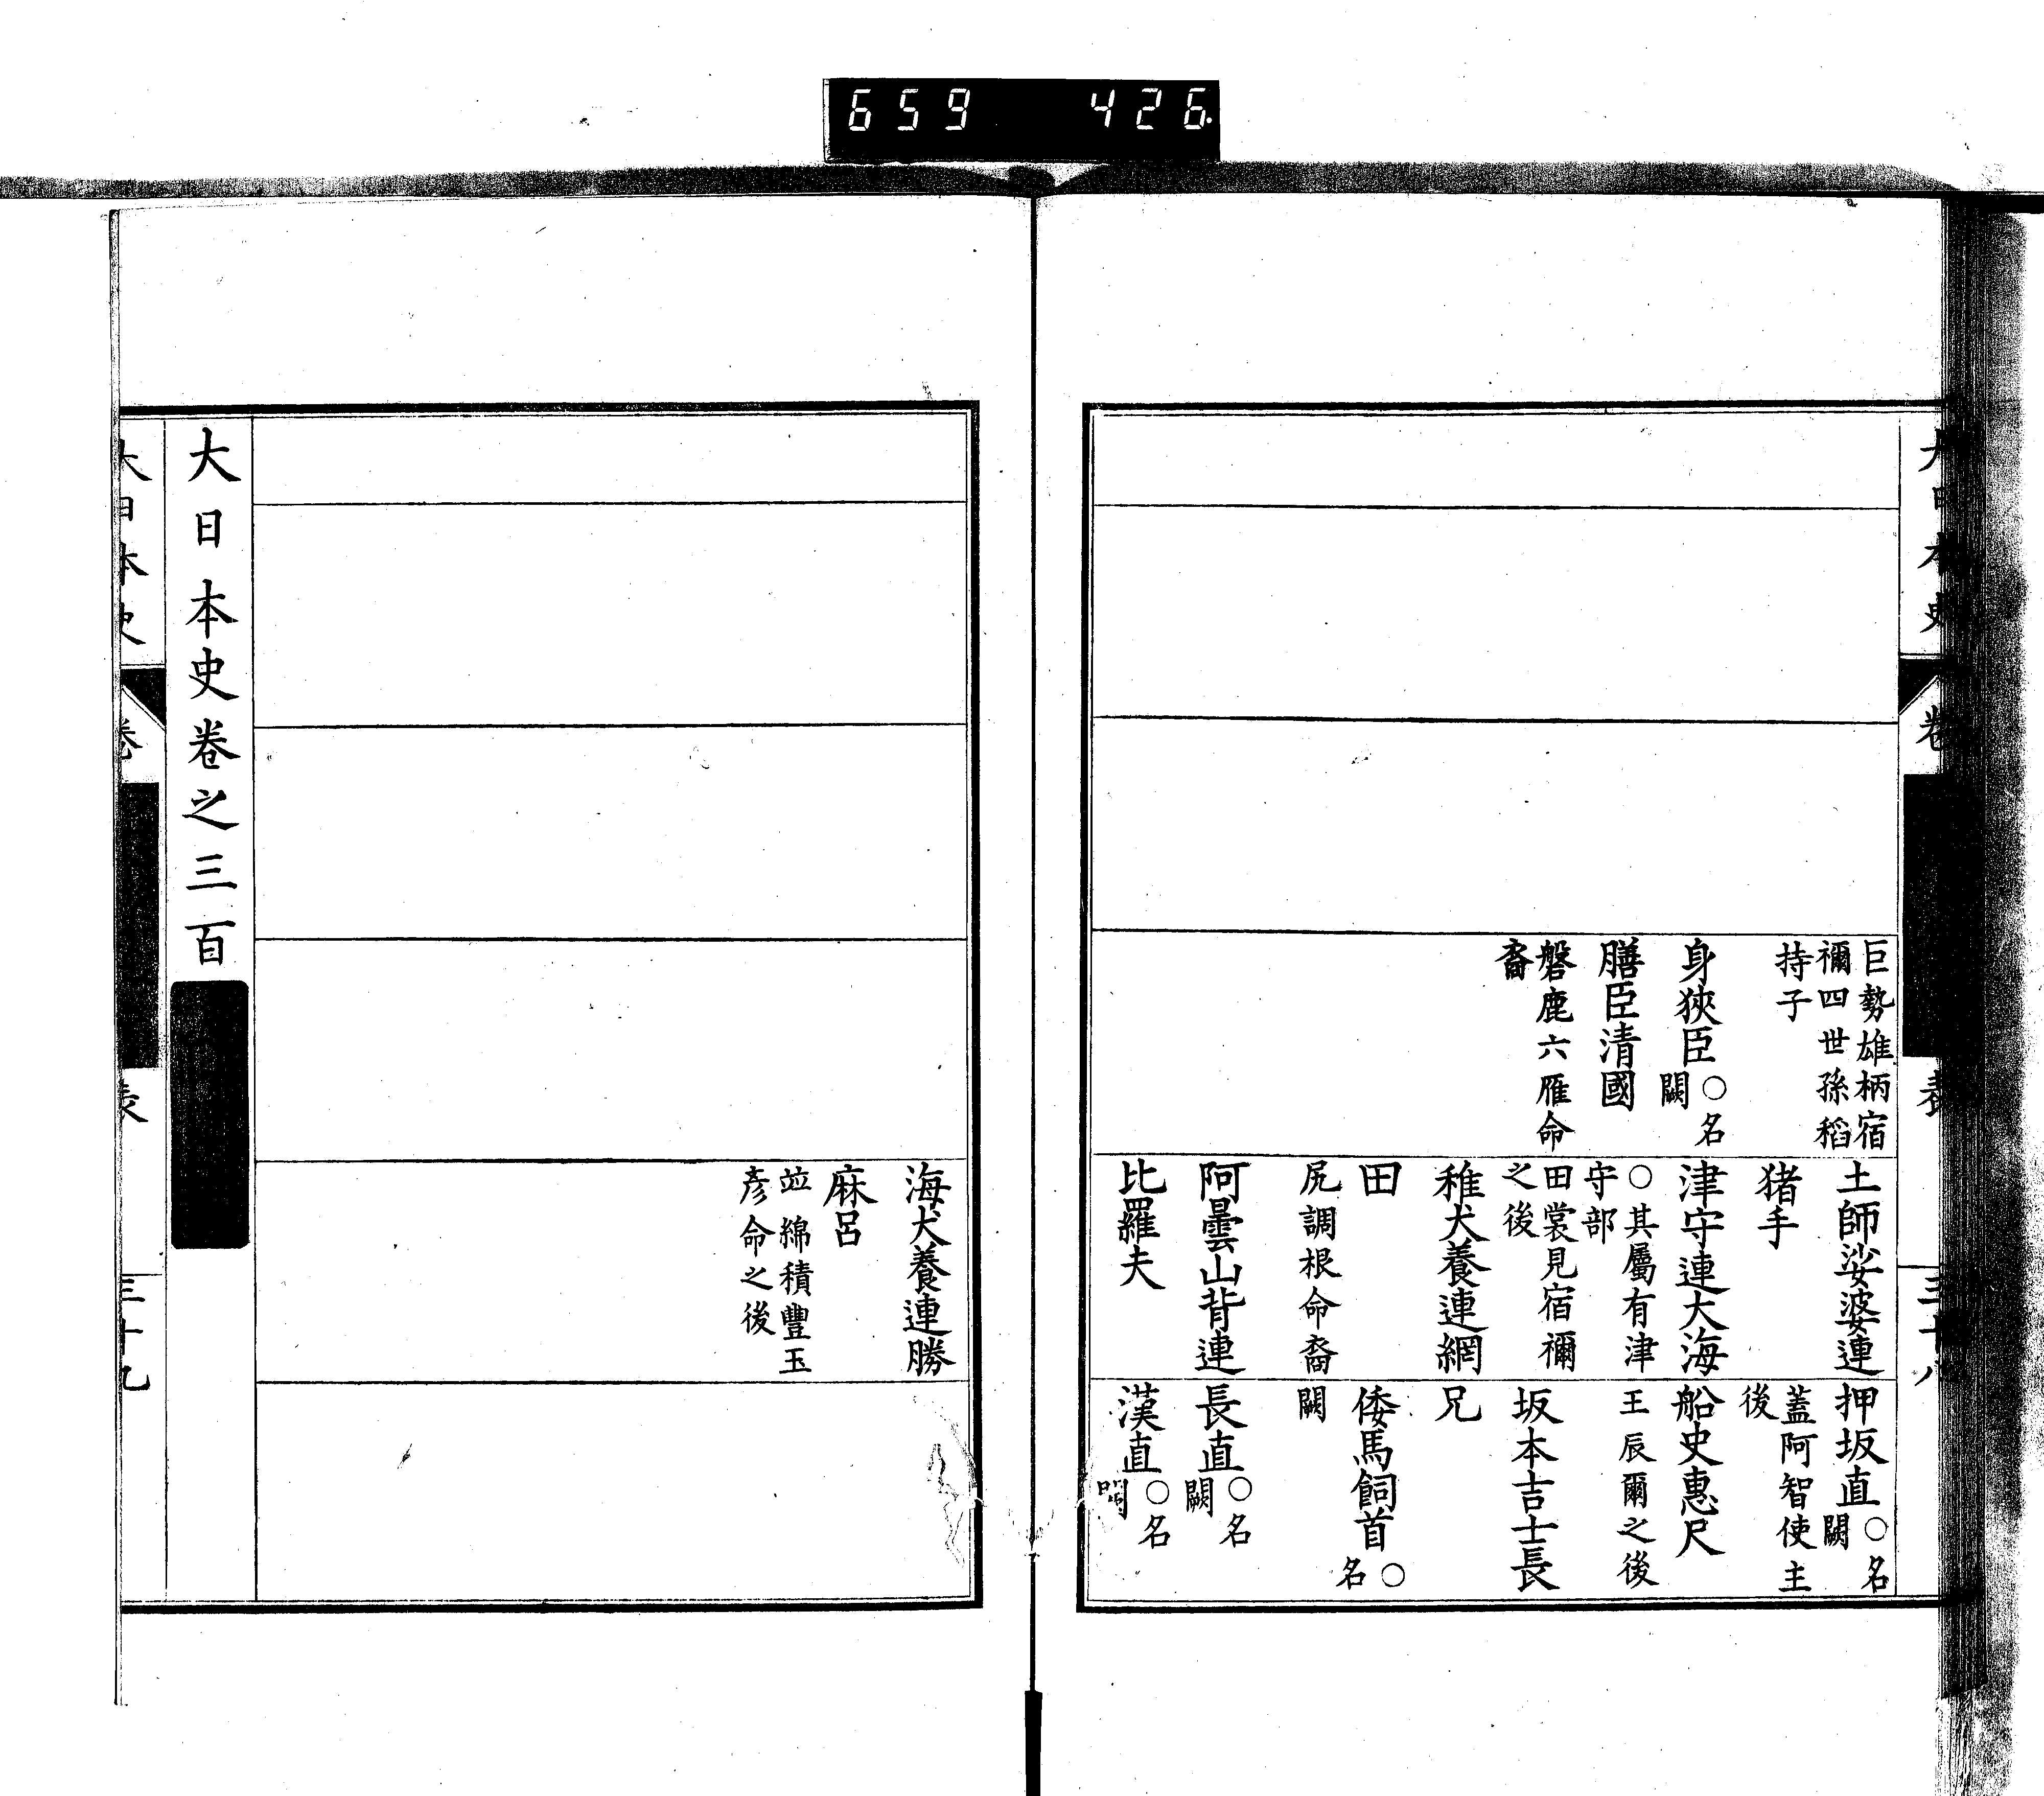 659 426
大日本史
卷
表
三十八
巨勢雄柄宿
禰四世孫稻
持子
身狹臣○名
闕
膳臣清國
磐鹿六雁命
裔
土師娑婆連
猪手
津守連大海
○其屬有津
守部
田裳見宿禰
之後
稚犬養連網
田
尻調根命裔
阿曇山背連
比羅夫
押坂直○名
闕
蓋阿智使主
後
船史惠尺
王辰爾之後
坂本吉士長
兄
倭馬飼首○
名
闕
長直○名
闕
漢直○名
闕
海犬養連勝
麻呂
竝綿積豐玉
彦命之後
大日本史卷之三百
大日本史
卷
表
三十九